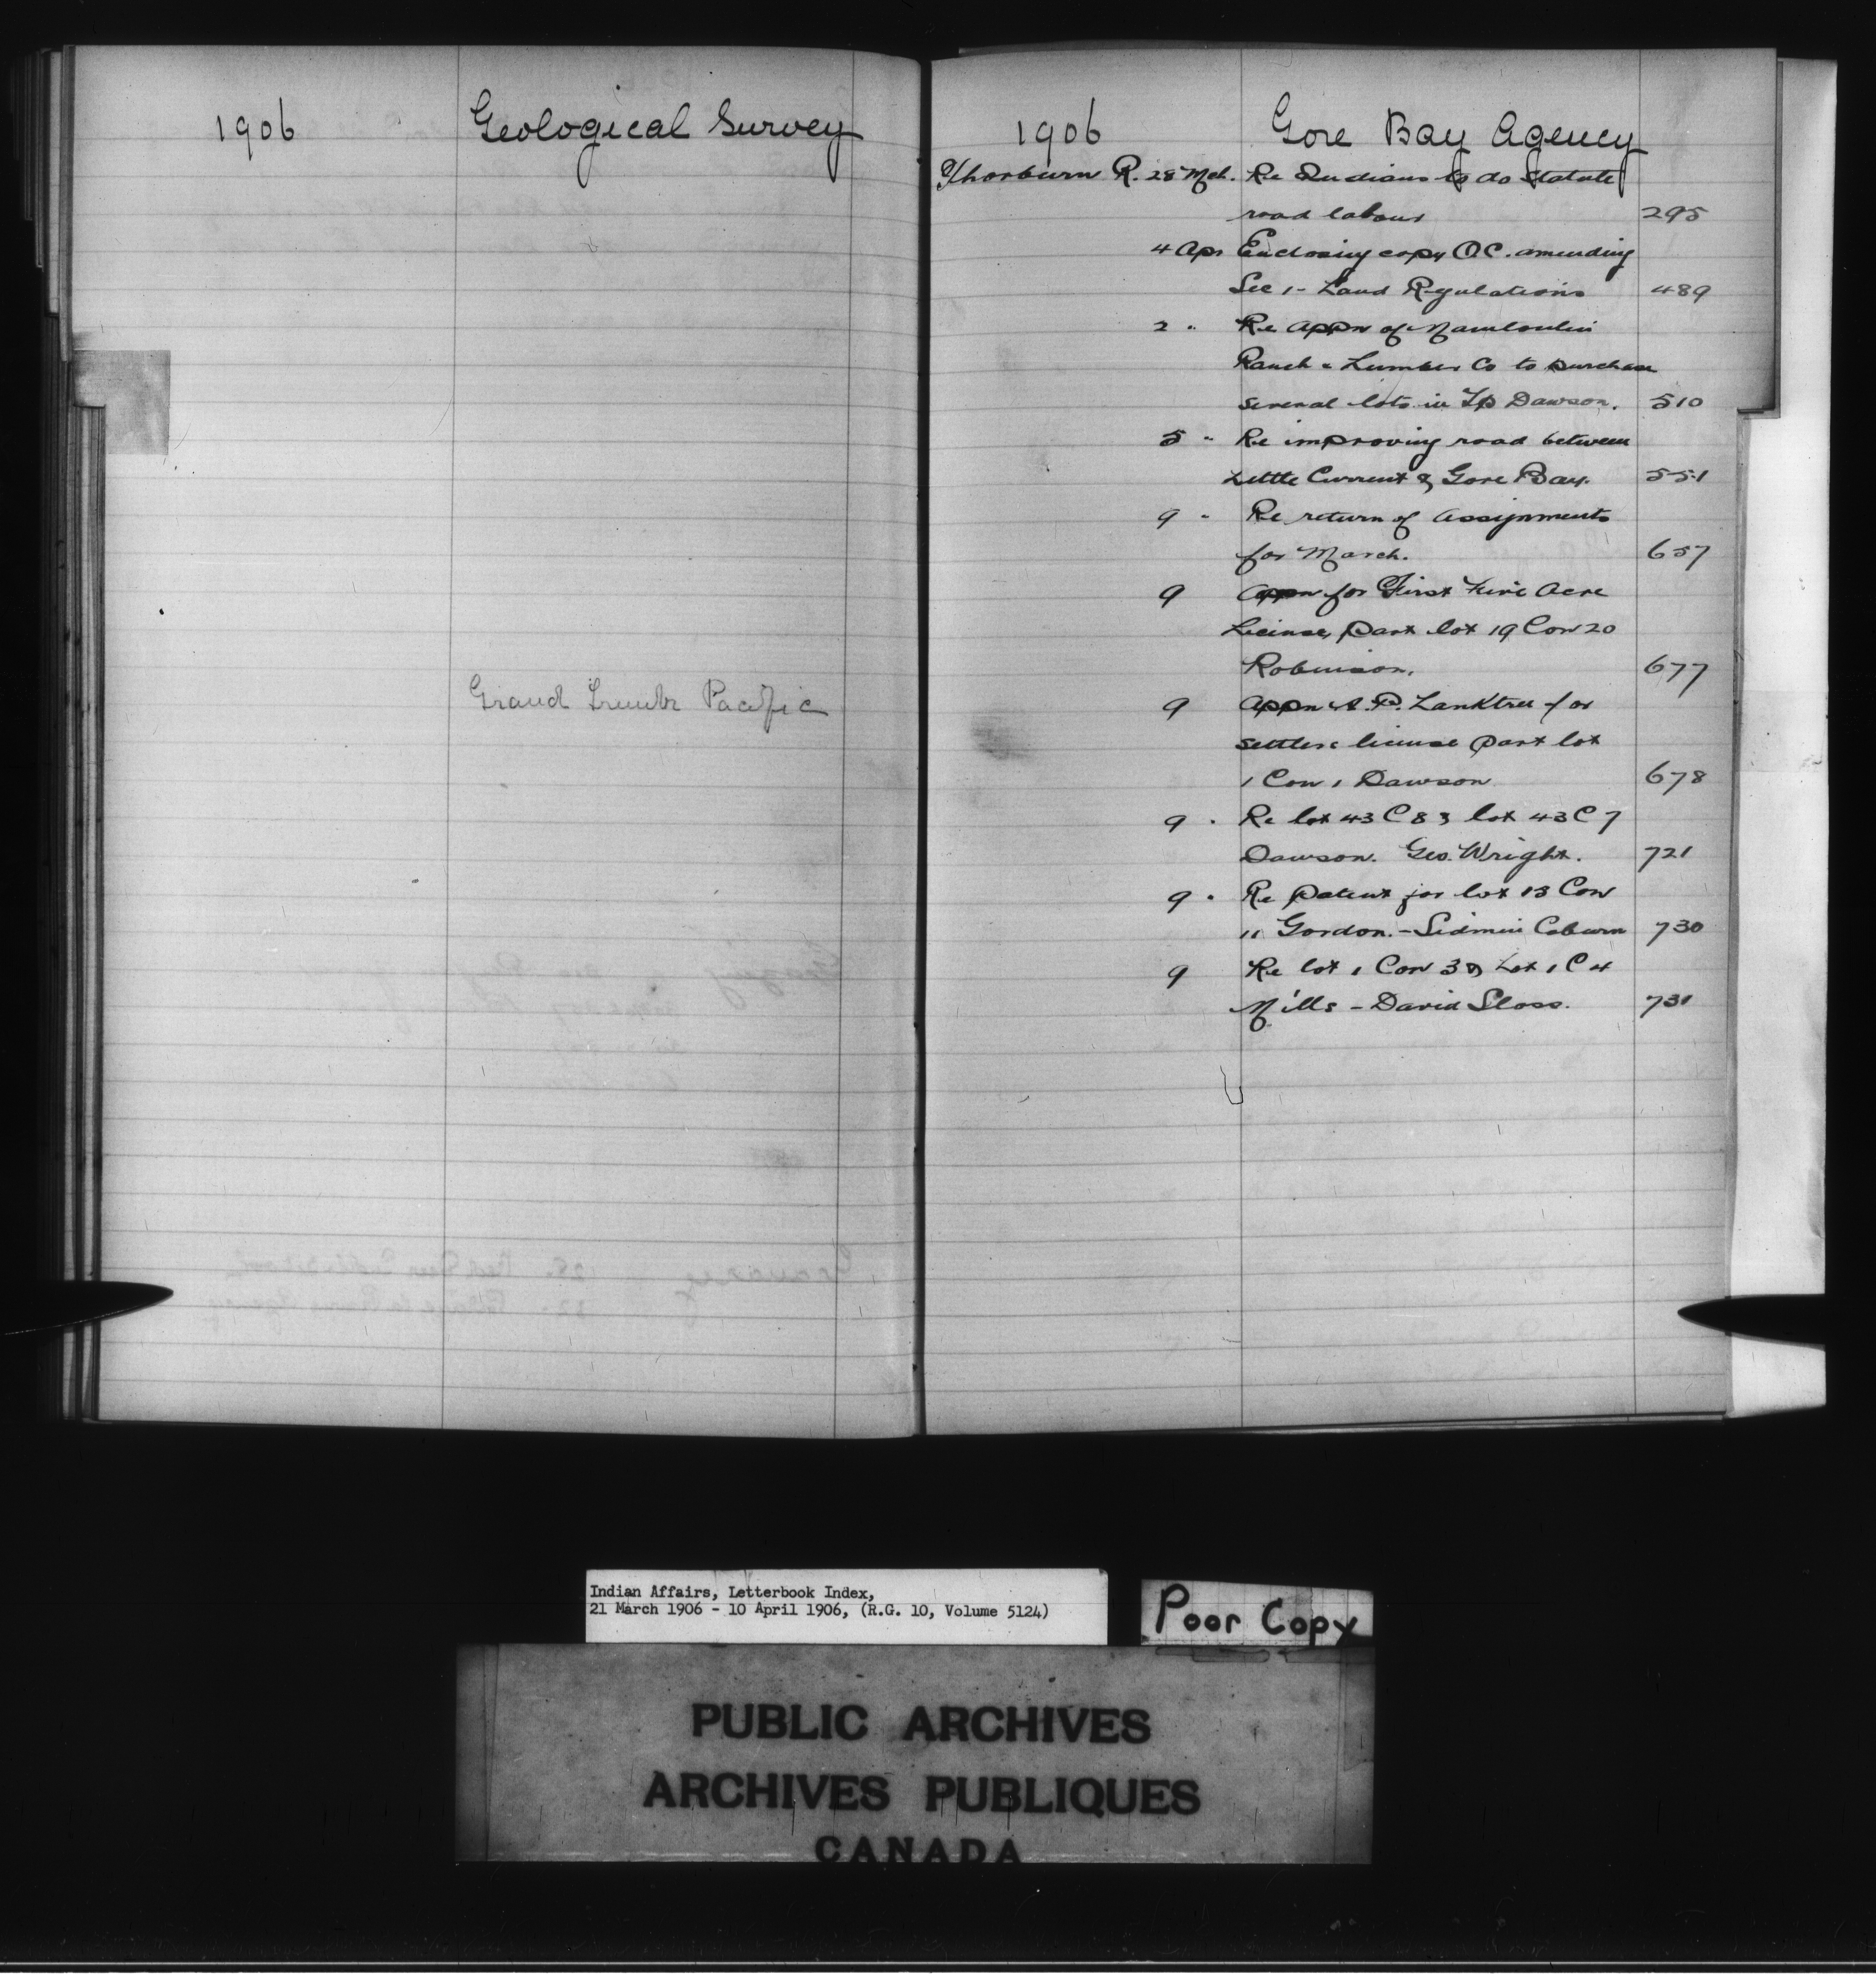 1906 Geological Survey
Grand Trunk Pacific
1906 Gore Bay Agency
Thorburn R. 28 Mch. Re Indians to do Statute
road labour 295
4 Apr Enclosing copy O.C. amending
Sec 1 - Land Regulations 489
2 " Re Appn of Manitoulin
Ranch & Lumber Co to purchase
several lots in Tp Dawson. 510
5 " Re improving road between
Little Current & Gore Bay. 551
9 " Re return of Assignments
for March. 657
9 Appn for First Five Acre
License, part lot 19 Con 20
Robinson. 677
9 Appn A. P. Lanktree for
settlers license part lot
1 Con 1 Dawson 678
9 " Re lot 43 C 8 & lot 43 C 7
Dawson. Geo. Wright. 721
9 " Re Patent for lot 13 Con
11 Gordon. - Coburn 730
9 Re lot 1 Con 3 & Lot 1 C 4
Mills - David Sloss. 731
Indian Affairs, Letterbook Index,
21 March 1906 - 10 April 1906, (R.G. 10, Volume 5124)
Poor Copy
PUBLIC ARCHIVES
ARCHIVES PUBLIQUES
CANADA